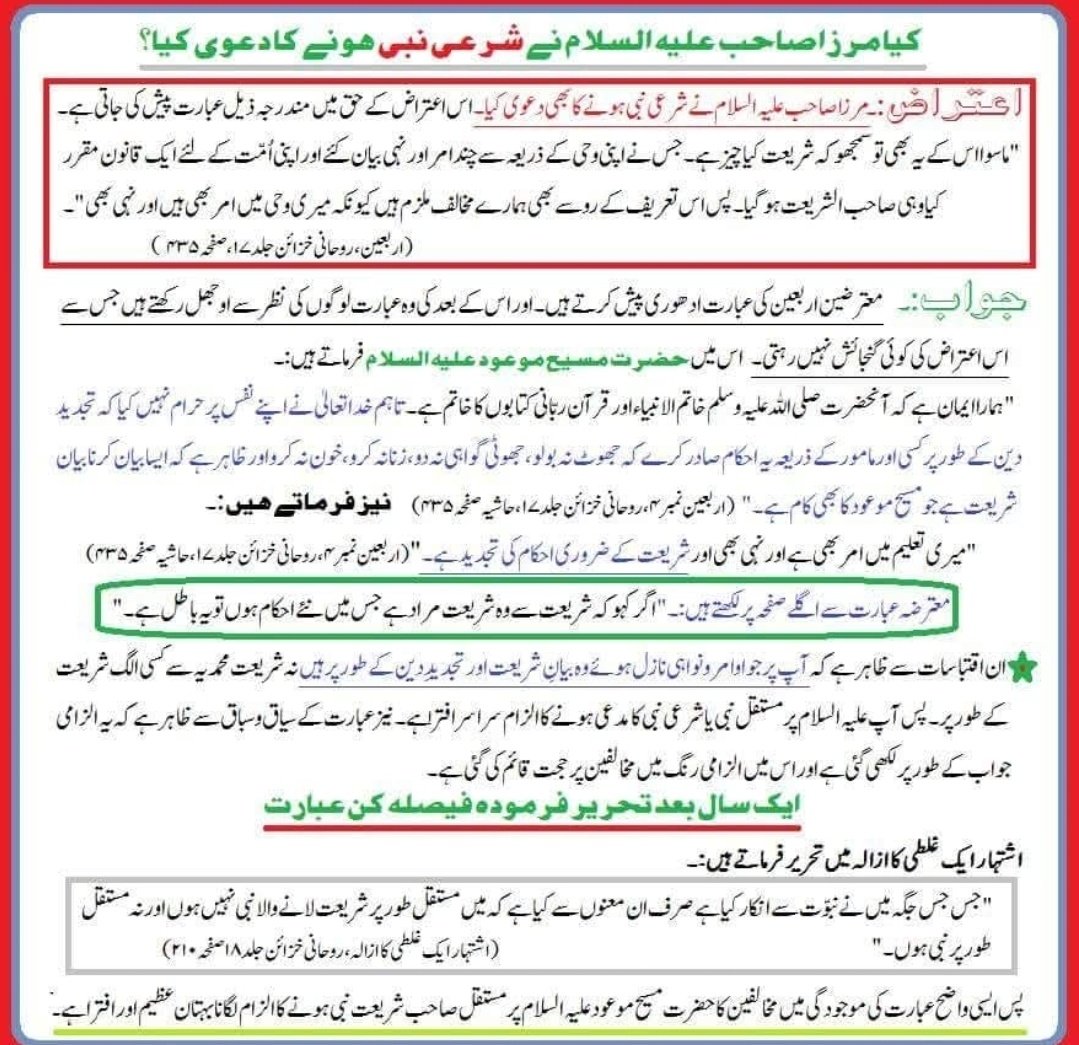 کیا مرزا صاحب علیہ السلام نے شرعی نبی ھونے کا دعوی کیا؟
اعتراض:۔ مرزا صاحب علیہ السلام نے شرعی نبی ہونے کا بھی دعویٰ کیا۔ اس اعتراض کے حق میں مندرجہ ذیل عبارت پیش کی جاتی ہے۔
"ماسوا اس کے یہ بھی تو سمجھو کہ شریعت کیا چیز ہے۔ جس نے اپنی وحی کے ذریعہ سے چند امر اور نہی بیان کئے اور اپنی اُمّت کے لئے ایک قانون مقرر
کیا وہی صاحب الشریعت ہو گیا۔ پس اس تعریف کے رو سے بھی ہمارے مخالف ملزم ہیں کیونکہ میری وحی میں امر بھی ہیں اور نہی بھی"۔
(اربعین، روحانی خزائن جلد ۱۷، صفحہ ۴۳۵)
جواب:۔ معترضین اربعین کی عبارت ادھوری پیش کرتے ہیں۔ اور اس کے بعد کی وہ عبارت لوگوں کی نظر سے اوجھل رکھتے ہیں جس سے
اس اعتراض کی کوئی گنجائش نہیں رہتی۔ اس میں حضرت مسیح موعود علیہ السلام فرماتے ہیں:۔
"ہمارا ایمان ہے کہ آنحضرت صلی اللہ علیہ وسلم خاتم الانبیاء اور قرآن ربّانی کتابوں کا خاتم ہے۔ تاہم خدا تعالیٰ نے اپنے نفس پر حرام نہیں کیا کہ تجدید
دین کے طور پر کسی اور مامور کے ذریعہ یہ احکام صادر کرے کہ جھوٹ نہ بولو، جھوٹی گواہی نہ دو، زنا نہ کرو، خون نہ کرو اور ظاہر ہے کہ ایسا بیان کرنا بیان
شریعت ہے جو مسیح موعود کا بھی کام ہے۔" (اربعین نمبر ۴، روحانی خزائن جلد ۱۷، حاشیہ صفحہ ۴۳۵) نیز فرماتے ھیں:۔
"میری تعلیم میں امر بھی ہے اور نہی بھی اور شریعت کے ضروری احکام کی تجدید ہے۔" (اربعین نمبر ۴، روحانی خزائن جلد ۱۷، حاشیہ صفحہ ۴۳۵)
معترضہ عبارت سے اگلے صفحہ پر لکھتے ہیں:۔ "اگر کہو کہ شریعت سے وہ شریعت مراد ہے جس میں نئے احکام ہوں تو یہ باطل ہے۔"
ان اقتباسات سے ظاہر ہے کہ آپ پر جو اوامر و نواہی نازل ہوئے وہ بیانِ شریعت اور تجدید دین کے طور پر ہیں نہ شریعت محمدیہ سے کسی الگ شریعت
کے طور پر۔ پس آپ علیہ السلام پر مستقل نبی یا شرعی نبی کا مدعی ہونے کا الزام سراسر افترا ہے۔ نیز عبارت کے سیاق و سباق سے ظاہر ہے کہ یہ الزامی
جواب کے طور پر لکھی گئی ہے اور اس میں الزامی رنگ میں مخالفین پر حجت قائم کی گئی ہے۔
ایک سال بعد تحریر فرمودہ فیصلہ کن عبارت
اشتہار ایک غلطی کا ازالہ میں تحریر فرماتے ہیں:۔
"جس جس جگہ میں نے نبوّت سے انکار کیا ہے صرف ان معنوں سے کیا ہے کہ میں مستقل طور پر شریعت لانے والا نبی نہیں ہوں اور نہ مستقل
طور پر نبی ہوں۔" (اشتہار ایک غلطی کا ازالہ، روحانی خزائن جلد ۱۸ صفحہ ۲۱۰)
پس ایسی واضح عبارت کی موجودگی میں مخالفین کا حضرت مسیح موعود علیہ السلام پر مستقل صاحب شریعت نبی ہونے کا الزام لگانا بہتان عظیم اور افترا ہے۔